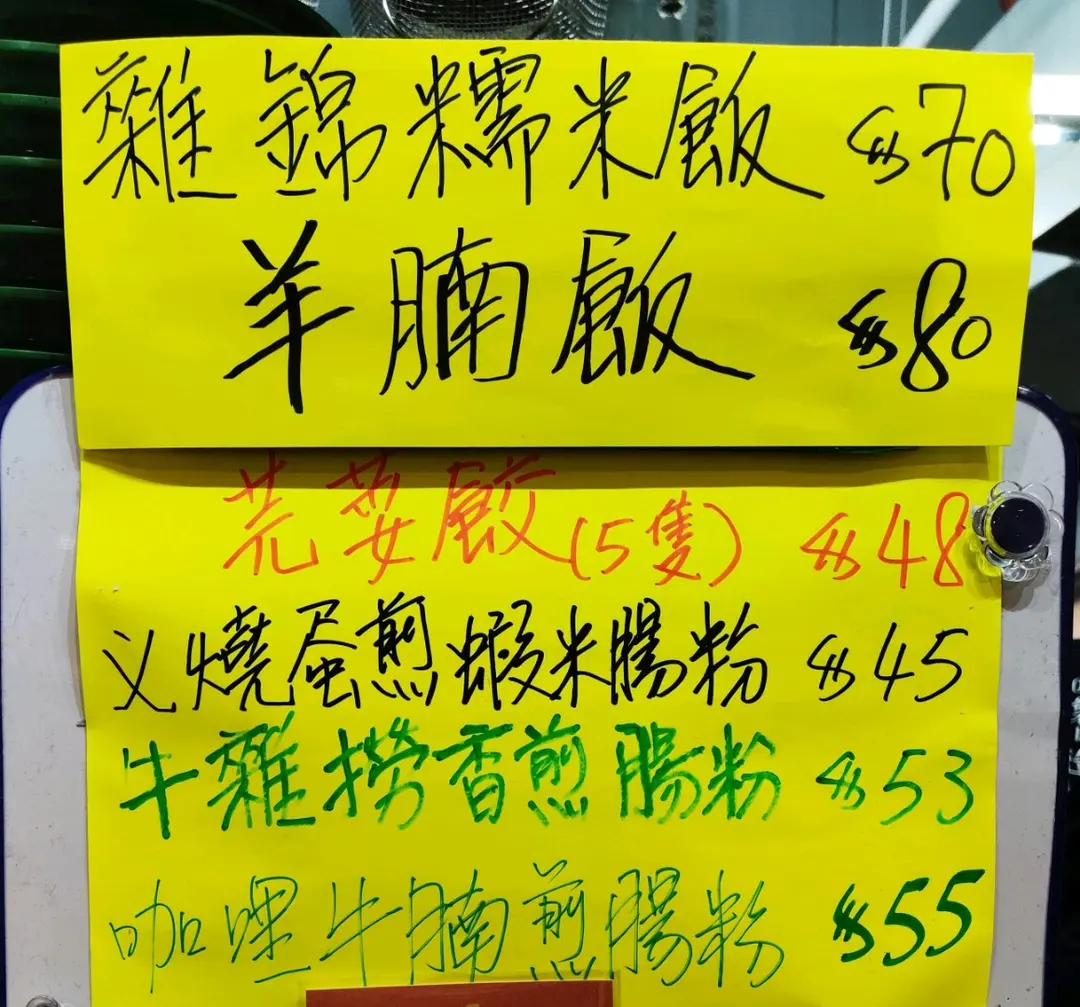 雜錦糯米飯 $70
羊腩飯 $80
芫荽餃(5隻) $48
叉燒蛋煎蝦米腸粉 $45
牛雜撈香煎腸粉 $53
咖喱牛腩煎腸粉 $55